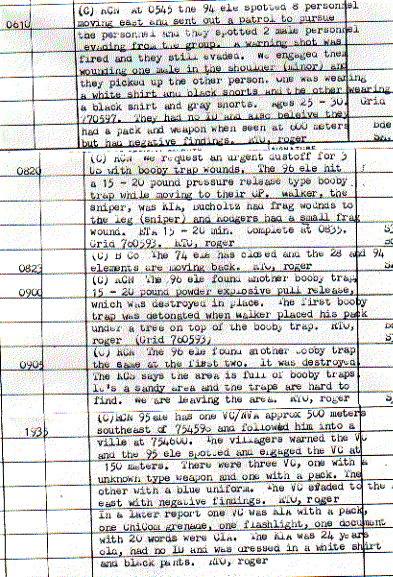 0610
(C) RCN At 0545 the 94 ele spotted 8 personnel
moving east and sent out a patrol to pursue
the personnel and they spotted 2 male personnel
evading from the group. A warning shot was
fired and they still evaded. We engaged them
wounding one male in the shoulder (minor) and
they picked up the other person. One was wearing
a white shirt and black shorts and the other wearing
a black shirt and gray shorts. Ages 25 - 30. Grid
770597. They had no ID and also beleive they
had a pack and weapon when seen at 600 meters
but had negative findings. RTO, roger
Bde
0820
(C) RCN We request an urgent dustoff for 3
US with booby trap wounds. The 96 ele hit
a 15 - 20 pound pressure release type booby
trap while moving to their LP. Walker, the
sniper, was KIA, Bucholtz had frag wounds to
the leg (sniper) and Rodgers had a small frag
wound. ETA 15 - 20 min. Complete at 0835.
Grid 760593. RTO, roger
0823
(C) B Co The 74 ele has closed and the 28 and 94
elements are moving back. RTO, roger
0900
(C) RCN The 96 ele found another booby trap,
15 - 20 pound powder explosive pull release,
which was destroyed in place. The first booby
trap was detonated when Walker placed his pack
under a tree on top of the booby trap. RTO,
roger (Grid 760593)
0905
(C) RCN The 96 ele found another booby trap
the same at the first two. It was destroyed.
The RCN says the area is full of booby traps.
It's a sandy area and the traps are hard to
find. We are leaving the area. RTO, roger
1935
(C)RCN 95 ele has one VC/NVA approx 500 meters
southeast of 754595 and followed him into a
ville at 754600. The villagers warned the VC
and the 95 ele spotted and engaged the VC at
150 meters. There were three VC, one with a
unknown type weapon and one with a pack. The
other with a blue uniform. The VC evaded to the
east with negative findings. RTO, roger
In a later report one VC was KIA with a pack,
one ChiCom grenade, one flashlight, one document
with 20 words were CIA. The KIA was 24 years
old, had no ID and was dressed in a white shirt
and black pants. RTO, roger